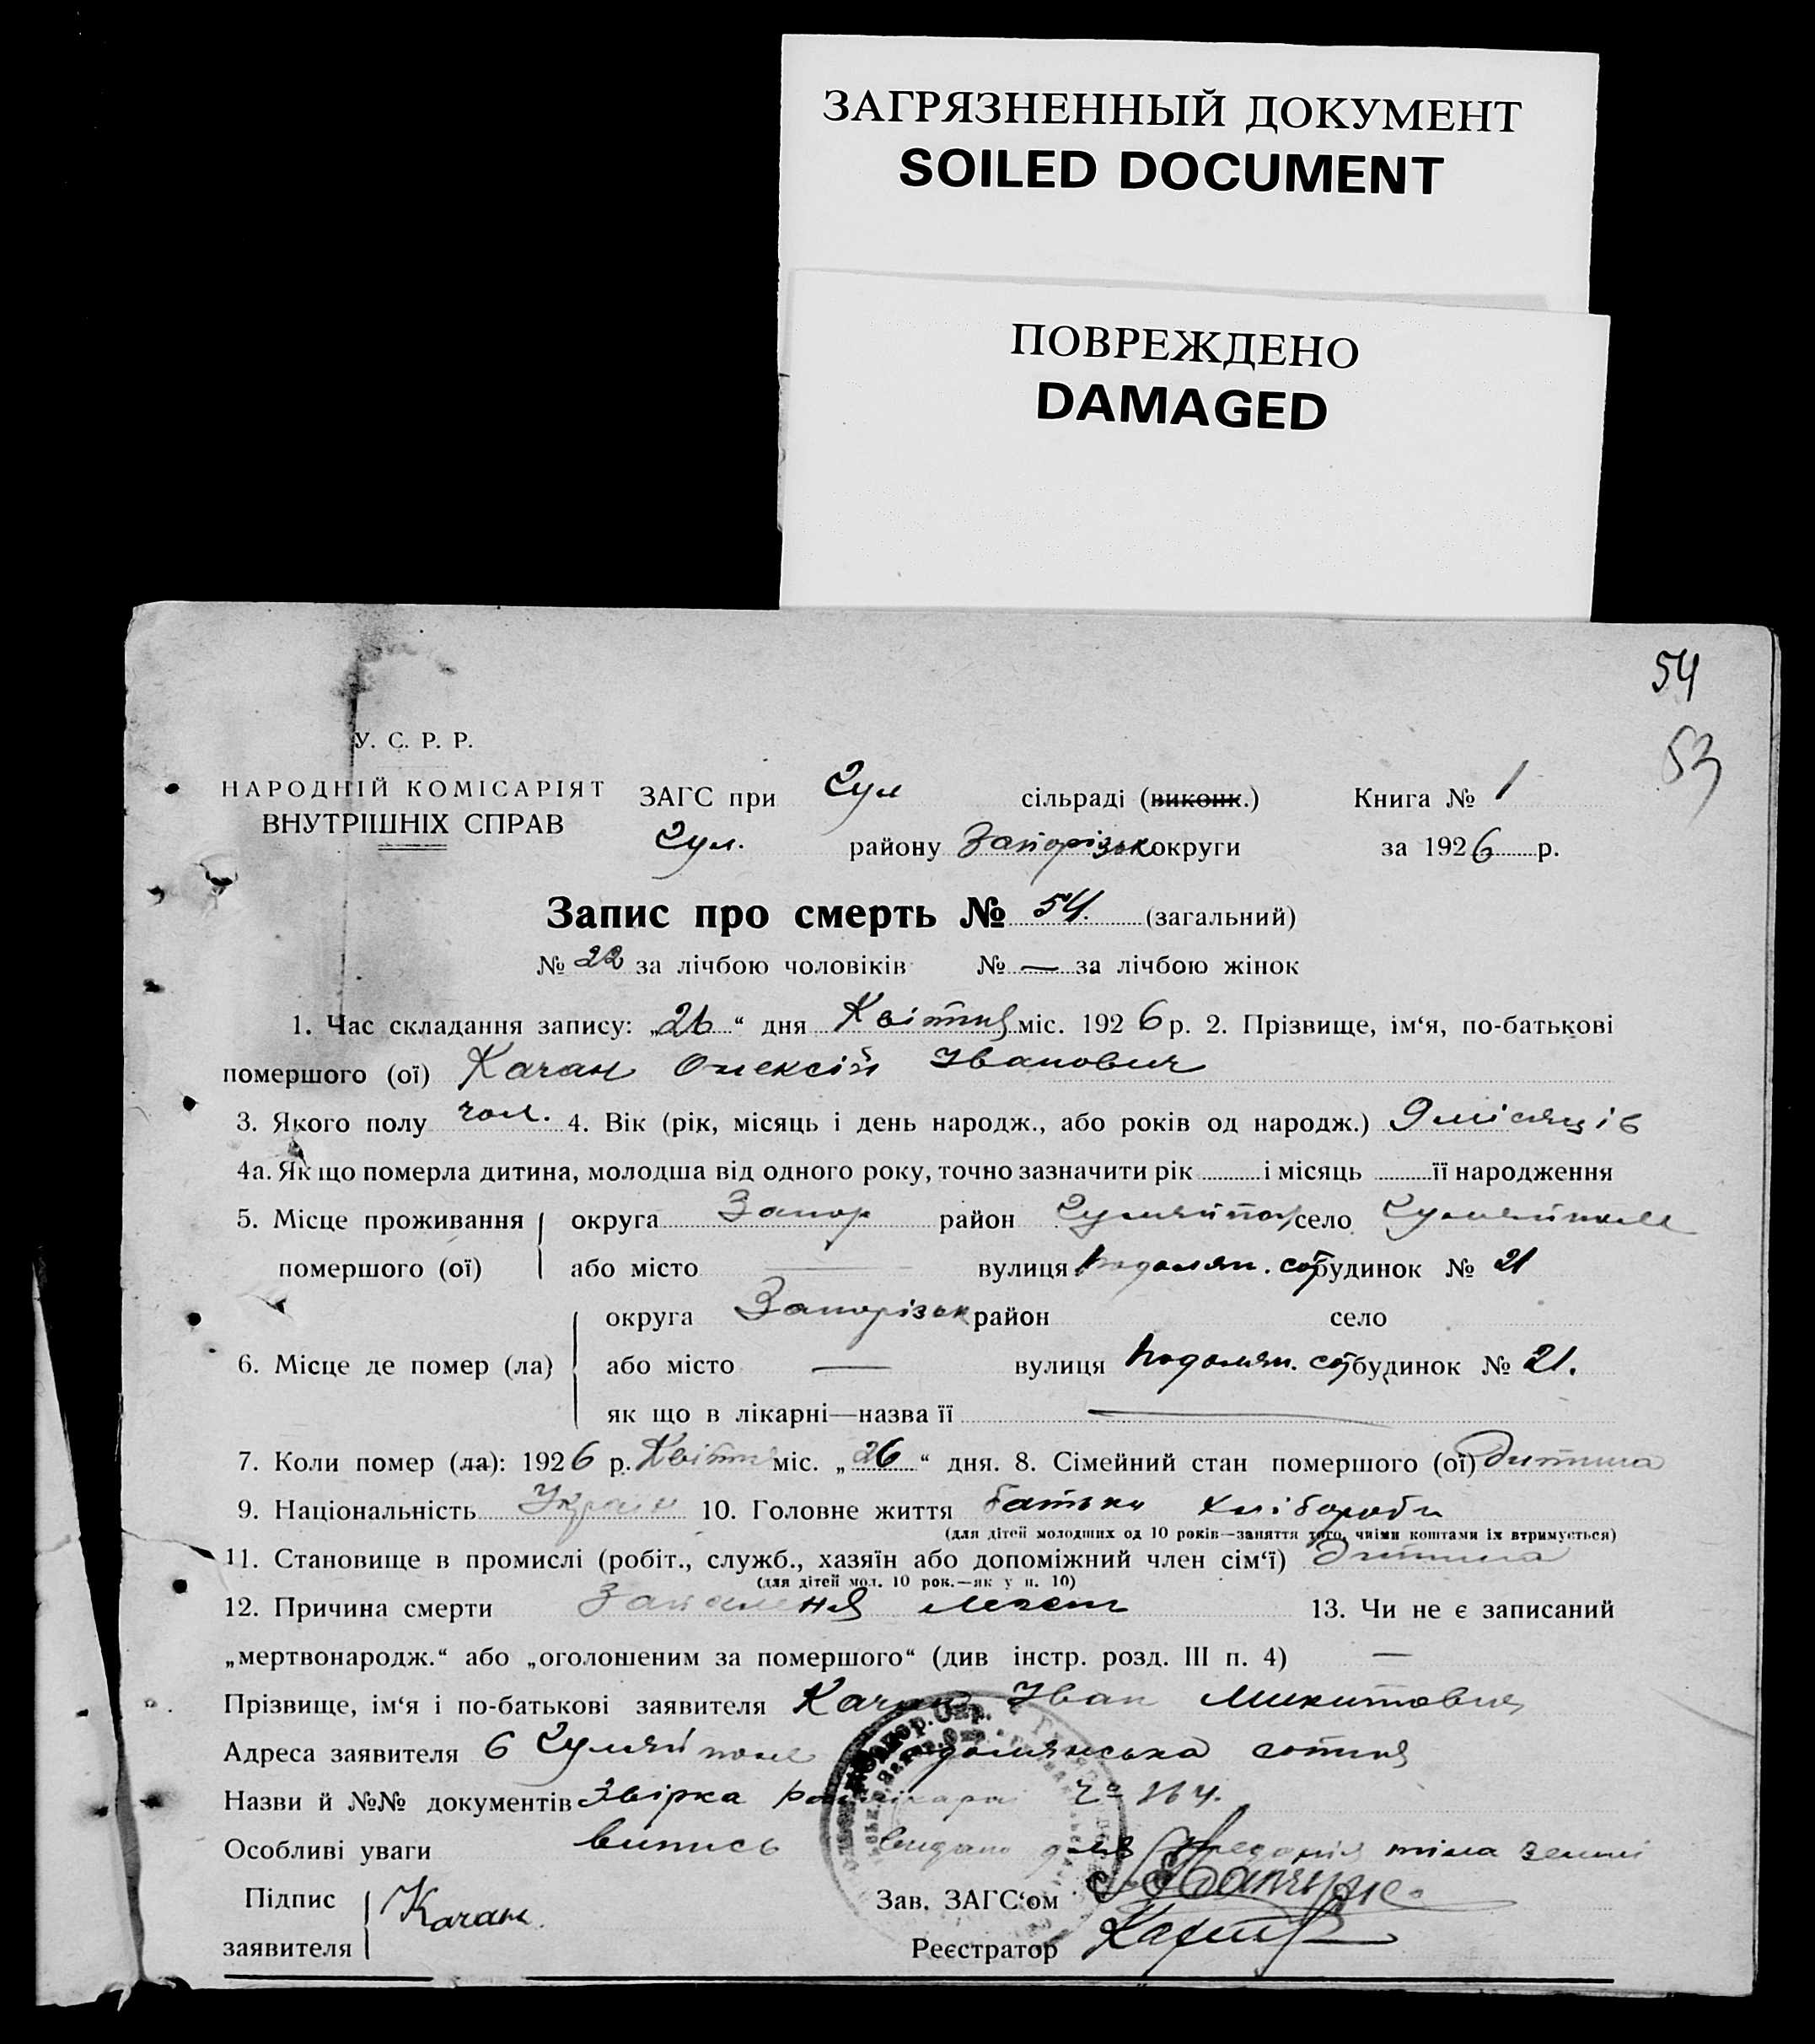 ЗАГРЯЗНЕННЫЙ ДОКУМЕНТ
SOILED DOCUMENT
ПОВРЕЖДЕНО
DAMAGED
54
53
У. С. Р. Р.
НАРОДНІЙ КОМІСАРІЯТ
ВНУТРІШНІХ СПРАВ
ЗАГС при Гул сільраді (виконк.) Книга № 1
Гул. району Запорізьк округи за 1926 р.
Запис про смерть № 54. (загальний)
№ 22 за лічбою чоловіків № — за лічбою жінок
1. Час складання запису: „26“ дня Квітня міс. 1926 р. 2. Прізвище, ім‘я, по-батькові
помершого (ої) Качан Олексій Іванович
3. Якого полу чол. 4. Вік (рік, місяць і день народж., або років од народж.) 9 місяців
4а. Як що померла дитина, молодша від одного року, точно зазначити рік і місяць її народження
5. Місце проживання помершого (ої) округа Запор район Гуляйпол село Гуляйполе
або місто — вулиця Подолян. сот будинок № 21
6. Місце де помер (ла) округа Запорізьк район село
або місто — вулиця Подолян. сот будинок № 21.
як що в лікарні—назва її —
7. Коли помер (ла): 1926 р. Квітня міс. „26“ дня. 8. Сімейний стан помершого (ої) Дитина
9. Національність Украін 10. Головне життя батьки хлібороби
(для дітей молодших од 10 років—заняття того, чиїми коштами їх втримується)
11. Становище в промислі (робіт., служб., хазяїн або допоміжний член сім‘ї) Дитина
(для дітей мол. 10 рок.—як у п. 10)
12. Причина смерти Запалення легень 13. Чи не є записаний
„мертвонародж.“ або „оголошеним за помершого“ (див інстр. розд. III п. 4) —
Прізвище, ім‘я і по-батькові заявителя Качан Іван Микитович
Адреса заявителя в Гуляйполе Подолянська сотня
Назви й №№ документів 164.
Особливі уваги випись видано для тіла землі
Підпис заявителя Качан.
Зав. ЗАГС‘ом
Реєстратор